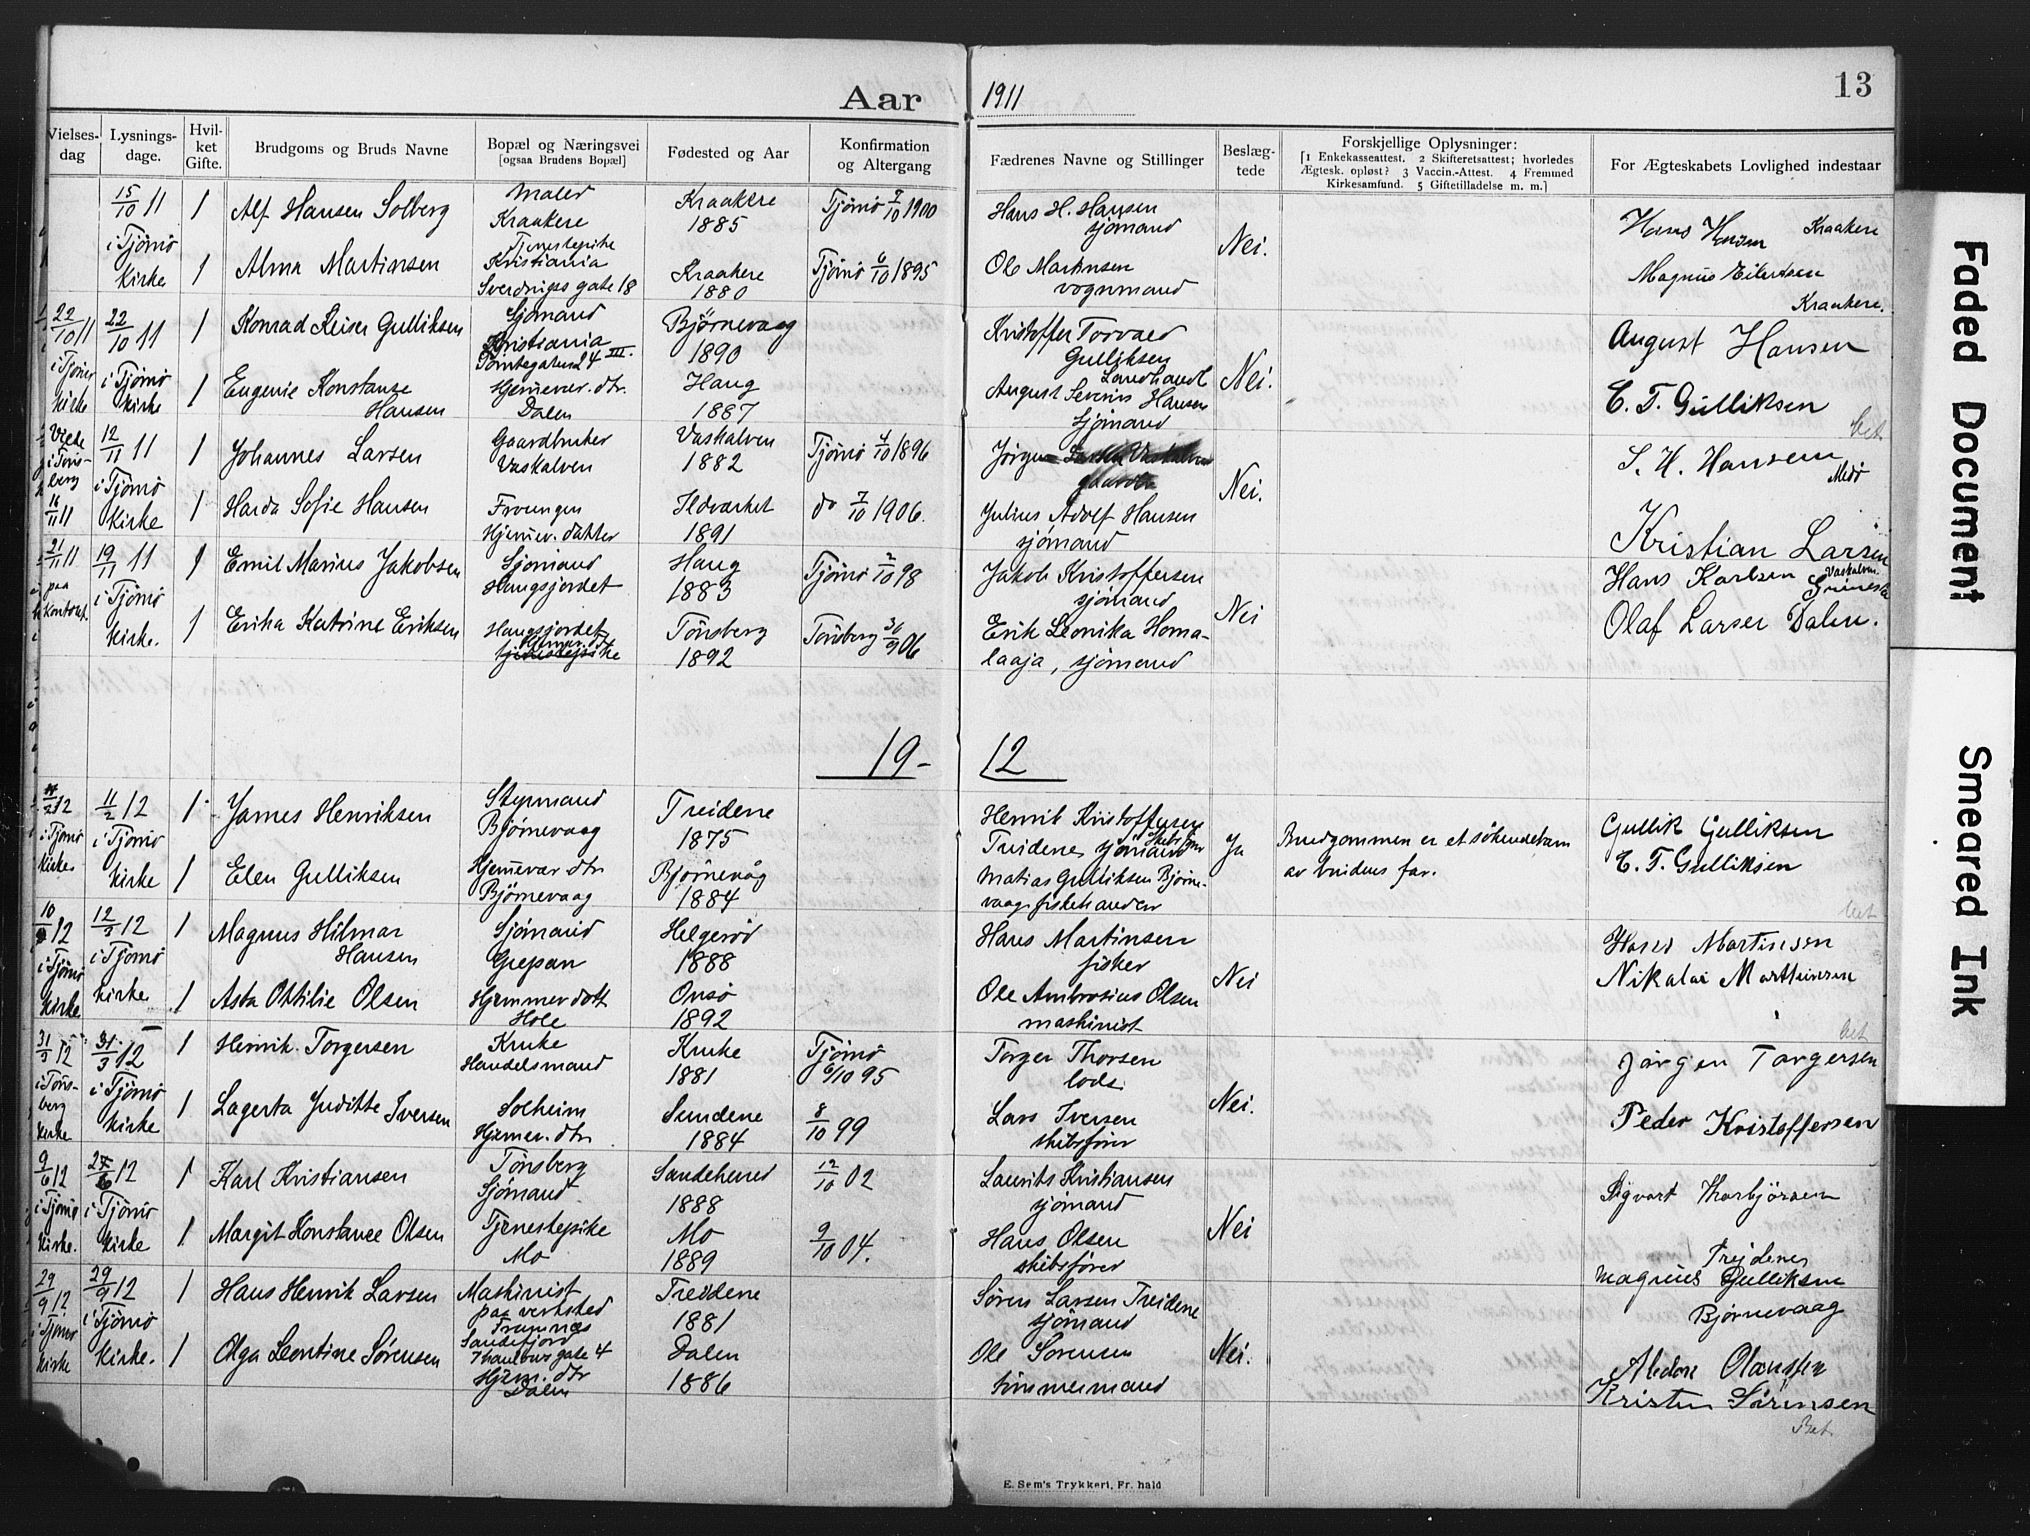 Aar 1911
13
Vielses-dag
Lysnings-dage.
Hvil-ket Gifte.
Brudgoms og Bruds Navne
Bopæl og Næringsvei
[ogsaa Brudens Bopæl]
Fødested og Aar
Konfirmation og Altergang
Fædrenes Navne og Stillinger
Beslæg-tede
Forskjellige Oplysninger:
[1 Enkekasseattest. 2 Skifteretsattest; hvorledes
Ægtesk. opløst? 3 Vaccin.-Attest. 4 Fremmed
Kirkesamfund. 5 Giftetilladelse m. m.]
For Ægteskabets Lovlighed indestaar
15/10 11
i Tjømø
kirke
1
Alf Hansen Solberg
Maler
Kraakere
Kraakere
1885
Tjømø 7/10 1900
Hans H. Hansen
sjømand
Nei.
Hans Hansen Kraakere
1
Alma Martinsen
Tjenestepike
Kristiania
Sverdrups gate 18
Kraakere
1880
Tjømø 6/10 1895
Ole Martinsen
vognmand
Magnus Eilertsen
Kraakere.
22/10 11
i Tjømø
kirke
22/10 11
i Tjømø
kirke
1
Konrad Keiser Gulliksen
Sjømand
Kristiania
Tomtegaten 24 III.
Bjørnevaag
1890
Kristoffer Torvald
Gulliksen
Landhandl
Nei.
August Hansen
1
Eugenie Konstanse
Hansen
Hjemmevær. dtr.
Dalen
Haug
1887
August Severin Hansen
Sjømand
C. T. Gulliksen
Viede
i Tøns-
berg
16/11 11
12/11 11
i Tjømø
Kirke
1
Johannes Larsen
Gaardbruker
Vaskalven
Vaskalven
1882
Tjømø 4/10 1896
Jørgen
Nei.
S. H. Hansen
Medø
1
Harda Sofie Hansen
Hjemmev. datter
Ildverket
1891
do 7/10 1906.
Julius Adolf Hansen
sjømand
Kristian Larsen
Vaskalven
21/11 11
paa
kontoret.
19/11 11
i Tjømø
kirke.
1
Emil Marius Jakobsen
Sjømand
Haugsjordet
Haug
1883
Tjømø 2/10 98
Jakob Kristoffersen
sjømand
Nei
Hans Karlsen
1
Erika Katrine Eriksen
Haugsjordet
Hjemmev. dtr
tjenestepike
Tønsberg
1892
Tønsberg 30/9 06
Erik Leonika Homa-
laaja, sjømand
Olaf Larsen Dalen.
19-12
12
i Tjømø
kirke
11/2 12
i Tjømø
kirke
1
James Henriksen
Styrmand
Bjørnevaag
Treidene
1875
Henrik Kristoffersen
Treidene, sjømand
Ja
Brudgommen er et søskendebarn
av brudens far.
Gullik Gulliksen
1
Elen Gulliksen
Hjemmevær dtr
Bjørnevaag
Bjørnevåg
1884
Matias Gulliksen Bjørne-
vaag fiskehandler
C. T. Gulliksen
10/3 12
i Tjømø
kirke
12/3 12
i Tjømø
kirke
1
Magnus Hilmar
Hansen
Sjømand
Grepan
Helgerød
1888
Hans Martinsen
fisker
Nei
Hans Martinsen
1
Asta Ottilie Olsen
Hjemmev dott
Hole
Onsø
1892
Ole Ambrosius Olsen
maskinist
Nikolai Marthinsen
31/3 12
i Tøns-
berg
kirke
31/3 12
i Tjømø
kirke
1
Henrik Torgersen
Kruke
Handelsmand
Kruke
1881
Tjømø
6/10 95
Torger Thorsen
lods
Nei.
Jørgen Torgersen
1
Lagerta Juditte Iversen
Solheim
Hjemev. dtr
Sundene
1884
8/10 99
Lars Iversen
skibsfører
Peder Kristoffersen
9/6 12
i Tjømø
kirke.
i Tjømø
kirke
1
Karl Kristiansen
Tønsberg
Sjømand
1888
12/10 02
Laurits Kristiansen
sjømand
Nei
Sigvart Thorbjørsen
Treidene
1
Margit Konstance Olsen
Tjenestepike
Mo
Mo
1889
9/10 04.
Hans Olsen
skibsfører
Magnus Gulliksen
Bjørnevaag
29/9 12
i Tjømø
kirke
29/9 12
i Tjømø
kirke.
1
Hans Henrik Larsen
Maskinist
paa verksted
Framnæs
Sandefjord
Treidene
1881
Søren Larsen Treidene
sjømand
Nei.
1
Olga Leontine Sørensen
Hjem. dtr
Dalen
Dalen
1886
Ole Sørensen
tømmermand
Kristen Sørensen
E. Sem's Trykkeri, Fr.hald
Faded Document
Smeared Ink